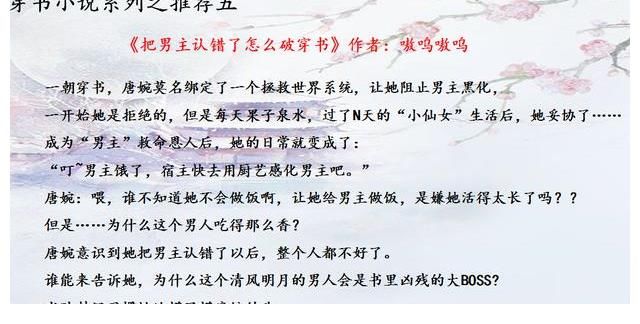 穿书小说系列之推荐五
《把男主认错了怎么破穿书》作者：嗷呜嗷呜
一朝穿书，唐婉莫名绑定了一个拯救世界系统，让她阻止男主黑化，
一开始她是拒绝的，但是每天果子泉水，过了N天的“小仙女”生活后，她妥协了……
成为“男主”救命恩人后，她的日常就变成了：
“叮~男主饿了，宿主快去用厨艺感化男主吧。”
唐婉：喂，谁不知道她不会做饭啊，让她给男主做饭，是嫌她活得太长了吗？？
但是……为什么这个男人吃得那么香？
唐婉意识到她把男主认错了以后，整个人都不好了。
谁能来告诉她，为什么这个清风明月的男人会是书里凶残的大BOSS?